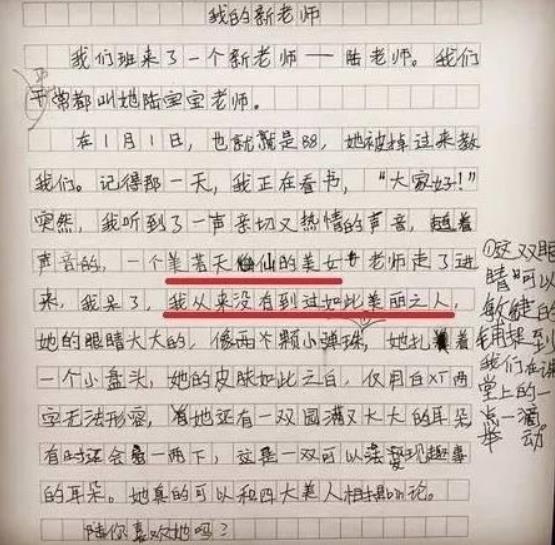 我的新老师
我们班来了一个新老师——陆老师。我们
平常都叫她陆宝宝老师。
在1月1日，也就是88，她被掉过来教
我们。记得那一天，我正在看书，“大家好！”
突然，我听到了一声亲切又热情的声音，趁着
声音的，一个美若天仙的美女老师走了进
来，我呆了，我从来没有到过如此美丽之人，
她的眼睛大大的，像两个颗小弹珠，她扎着
一个小盘头，她的皮肤如此之白，仅用白XT两
字无法形容，她还有一双圆满又大大的耳朵
有时还会一两下，这是一双可以发现趣事
的耳朵。她真的可以和四大美人相提bìn论。
陆你喜欢她吗？
①这双眼
睛可以
敏健的
捕捉到
我们在课
堂上的一
点一滴
举动